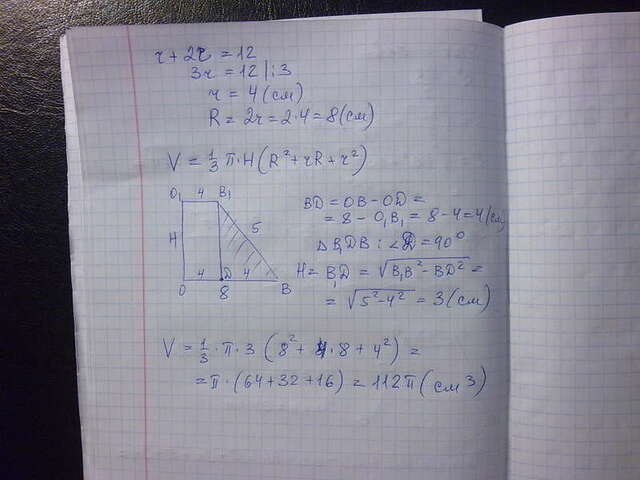 r + 2r = 12
3r = 12 | : 3
r = 4 (см)
R = 2r = 2·4 = 8 (см)
V = 1/3 π·H (R² + rR + r²)
O₁ 4 B₁
H 5
4 D 4
O 8 B
BD = OB − OD =
= 8 − O₁B₁ = 8 − 4 = 4 (см)
△ B₁DB : ∠D = 90°
H = B₁D = √(B₁B² − BD²) =
= √(5² − 4²) = 3 (см)
V = 1/3 · π · 3 (8² + 4·8 + 4²) =
= π · (64 + 32 + 16) = 112π (см³)